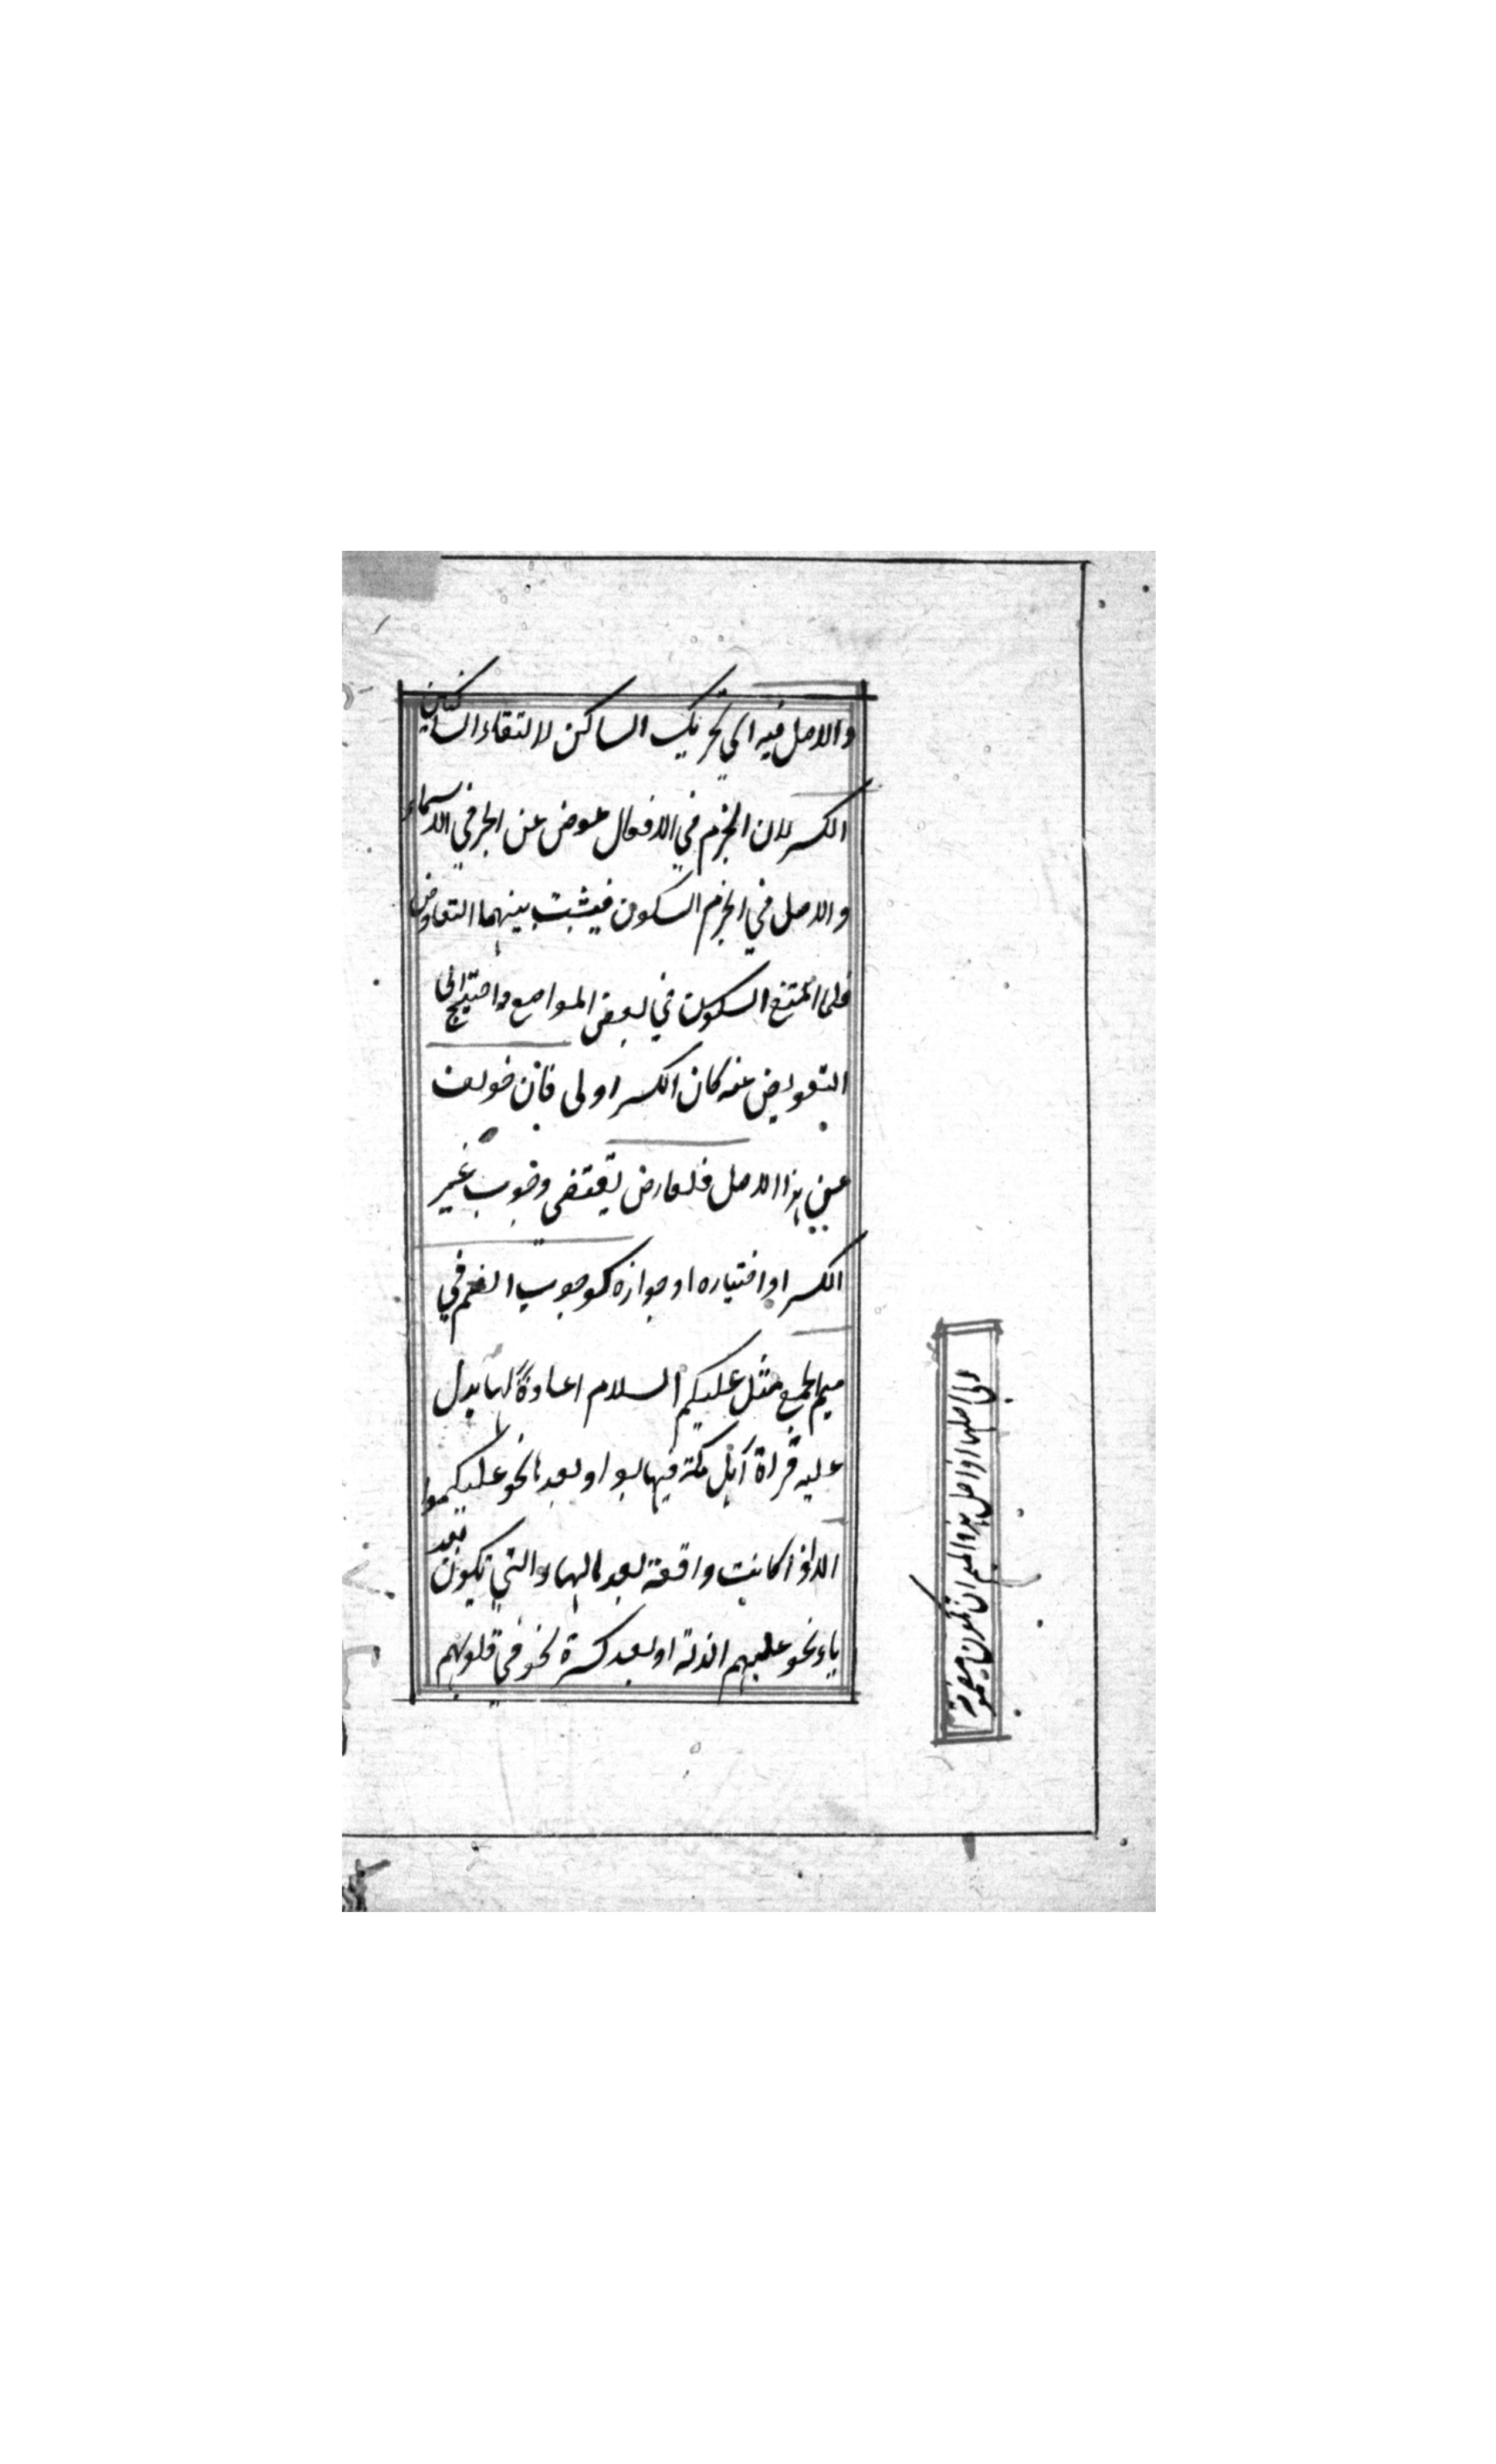 والاصل فيه اي تحريك الساكن لالتقاء الساكنين
الكسر لان الجزم في الافعال عوض عن الجر في الاسماء
والاصل في الجزم السكون فيثبت بينهما التعاوض
فلما امتنع السكون في بعض المواضع واحتيج الى
التعويض عنه كان الكسر اولى فان خولف
عن هذا الاصل فلعارض يقتضي وجوب غير
الكسر او اختياره او جوازه كوجوب الضم في
ميم الجمع مثل عليكم السلام اعادة لها يدل
عليه قراة اهل مكة فيها بواو بعدها نحو عليكموا
الا اذا كانت واقعة بعد الهاء والتي تكون بعد
ياء نحو عليهم الذلة او بعد كسرة نحو في قلوبهم
على اصلها اذ اصل هذه الميم ان تكون مضمومة